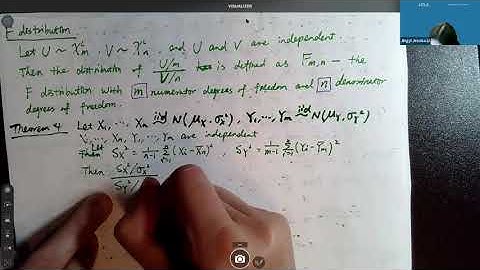 VISUALIZER
F distribution
Let U ~ χ²m, V ~ χ²n, and U and V are independent.
Then the distribution of U/m / V/n is defined as Fm,n — the
F distribution with m numerator degrees of freedom and n denominator
degrees of freedom.
Theorem 4 Let X1, ..., Xn iid~ N(μX, σX²), Y1, ..., Ym iid~ N(μY, σY²)
X1, ..., Xn, Y1, ..., Ym are independent
Let SX² = 1/(n-1) Σ (Xi - X̄n)², SY² = 1/(m-1) Σ (Yi - Ȳm)²
Then SX²/σX² / SY²/